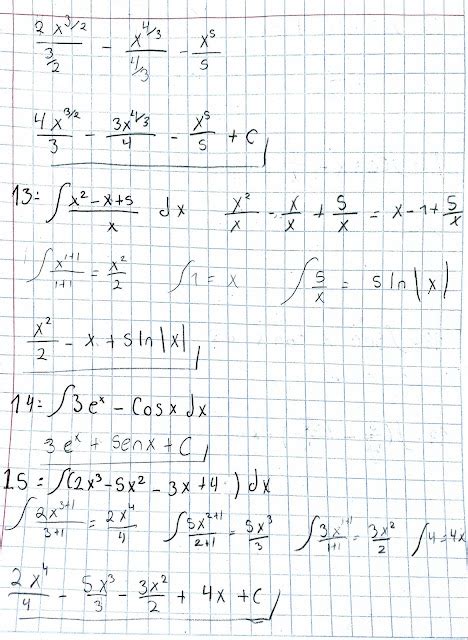 2x^{3/2}/(3/2) - x^{4/3}/(4/3) - x^5/5
4x^{3/2}/3 - 3x^{4/3}/4 - x^5/5 + C
13= ∫ (x²-x+5)/x dx   x²/x - x/x + 5/x = x-1+5/x
∫ x^{1+1}/(1+1) = x²/2   ∫1 = x   ∫ 5/x = 5 ln|x|
x²/2 - x + 5 ln|x|
14= ∫3e^x - Cosx dx
3e^x + senx + C
15= ∫(2x³-5x²-3x+4) dx
∫ 2x^{3+1}/(3+1) = 2x⁴/4   ∫ 5x^{2+1}/(2+1) = 5x³/3   ∫ 3x^{1+1}/(1+1) = 3x²/2   ∫4=4x
2x⁴/4 - 5x³/3 - 3x²/2 + 4x + C